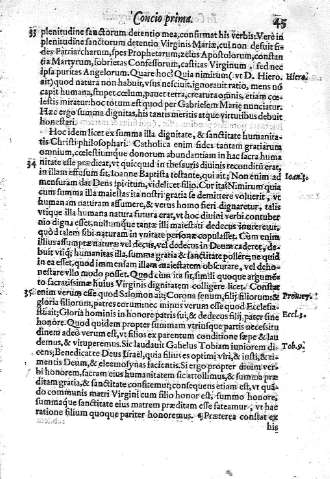 Concio prima. 45
33 plenitudine sanctorum detentio mea, confirmat his verbis: Verè in
plenitudine sanctorum detentio Virginis Mariæ, cui non defuit fi-
des Patriarcharum, spes Prophetarum, zelus Apostolorum, constan
tia Martyrum, sobrietas Confessorum, castitas Virginum, sed nec
ipsa puritas Angelorum. Quare hoc? Quia nimirum (vt D. Hiero. Hiero.
ait) quod natura non habuit, vsus nesciuit, ignorauit ratio, mens nō
capit humana, stupet cœlum, pauet terra, creatura omnis, etiam cœ-
lestis miratur: hoc totum est quod per Gabrielem Mariæ nunciatur.
Hæc ergo summa dignitas, his tantis meritis atque virtutibus debuit
honestari.
Hoc idem licet ex summa illa dignitate, & sanctitate humanita-
tis Christi philosophari. Catholica enim fides tantam gratiarum
omnium, cœlestiumque donorum abundantiam in hac sacra huma
34 nitate esse prædicat, vt quicquid in thesauris diuinis reconditū erat,
in illam effusum sit, Ioanne Baptista testante, qui ait; Non enim ad Ioan.3.
mensuram dat Deus spiritum, videlicet filio. Cur ita? Nimirum quia
cum summa illa maiestas ita nostri gratia se demittere voluerit, vt
humanam naturam assumere, & verus homo fieri dignaretur, talis
vtique illa humana natura futura erat, vt hoc diuini verbi contuber
nio digna esset, nullumque tantæ illi maiestati dedecus inureretur,
quòd talem sibi naturam in vnitate personæ copulasset. Cùm enim
illius assumptæ naturæ vel decus, vel dedecus in Deum caderet, de-
buit vtiq; humanitas illa, summa gratia & sanctitate pollere; ne quid
in ea esset, quod immensam illam maiestatem obscurare, vel deho-
nestare vllo modo posset. Quod cùm ita sit, simili quoque argumē
to sacratissimæ huius Virginis dignitatem colligere licet. Constat
35 enim verum esse quod Salomon ait; Corona senum, filij filiorum: & Prouer.
gloria filiorum, patres eorum: nec minus verum esse quod Ecclesia-
sticus ait; Gloria hominis in honore patris sui, & dedecus filij, pater sine Eccl.3.
honore. Quod quidem propter summam vtriusque partis necessitu
dinem adeò verum est, vt filios ex parentum conditione sæpe & lau
demus, & vituperemus. Sic laudauit Gabelus Tobiam iuniorem di- Tob.9.
cens; Benedicat te Deus Israel, quia filius es optimi viri, & iusti, & ti-
mentis Deum, & eleemosynas facientis. Si ergo propter diuini ver-
bi honorem, sacram eius humanitatem sic attollimus, & summè præ
ditam gratia, & sanctitate confitemur; consequens etiam est, vt quā-
do communis matri Virgini cum filio honor est, summo honore,
summaque sanctitate eius matrem præditam esse fateamur, vt hac
ratione filium quoque pariter honoremus. ¶ Præterea constat ex
his